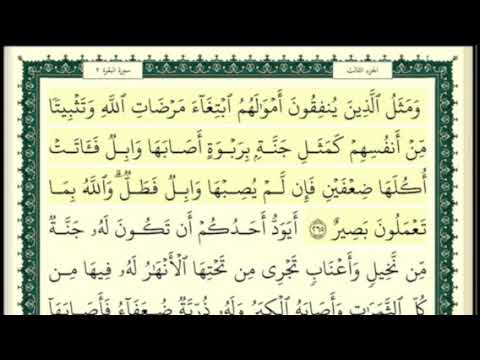 الجزء الثالث سورة البقرة ٢
وَمَثَلُ ٱلَّذِينَ يُنفِقُونَ أَمۡوَٰلَهُمُ ٱبۡتِغَآءَ مَرۡضَاتِ ٱللَّهِ وَتَثۡبِيتٗا
مِّنۡ أَنفُسِهِمۡ كَمَثَلِ جَنَّةِۭ بِرَبۡوَةٍ أَصَابَهَا وَابِلٞ فَـَٔاتَتۡ
أُكُلَهَا ضِعۡفَيۡنِ فَإِن لَّمۡ يُصِبۡهَا وَابِلٞ فَطَلّٞۗ وَٱللَّهُ بِمَا
تَعۡمَلُونَ بَصِيرٌ ٢٦٥ أَيَوَدُّ أَحَدُكُمۡ أَن تَكُونَ لَهُۥ جَنَّةٞ
مِّن نَّخِيلٖ وَأَعۡنَابٖ تَجۡرِي مِن تَحۡتِهَا ٱلۡأَنۡهَٰرُ لَهُۥ فِيهَا مِن
كُلِّ ٱلثَّمَرَٰتِ وَأَصَابَهُ ٱلۡكِبَرُ وَلَهُۥ ذُرِّيَّةٞ ضُعَفَآءُ فَأَصَابَهَآ